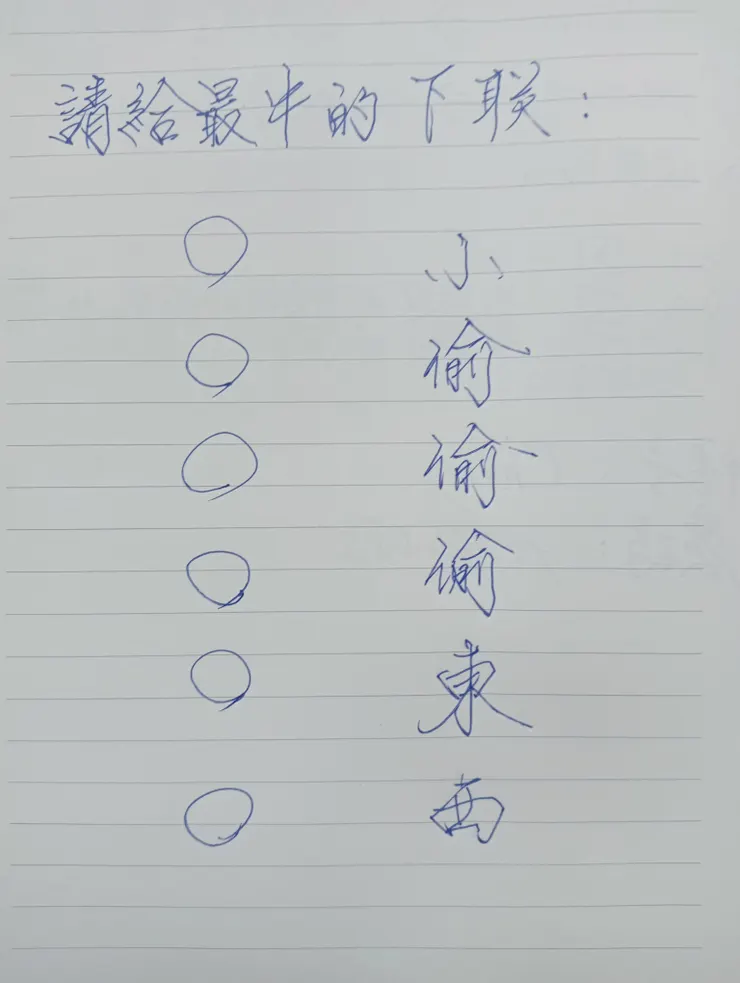 請給最牛的下联：
○ 小
○ 偷
○ 偷
○ 偷
○ 東
○ 西